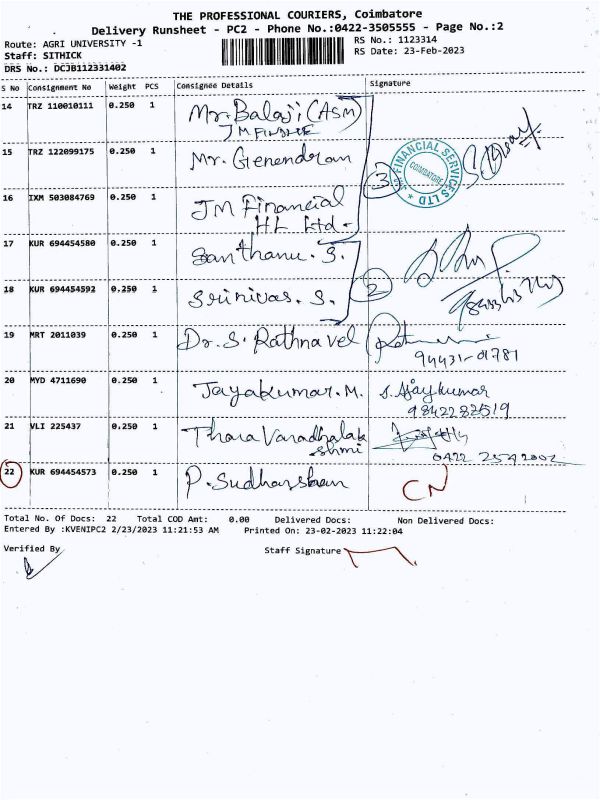 THE PROFESSIONAL COURIERS, Coimbatore
Delivery Runsheet - PC2 - Phone No.:0422-3505555 - Page No.:2
Route: AGRI UNIVERSITY -1
RS No.: 1123314
Staff: SITHICK
RS Date: 23-Feb-2023
DRS No.: DCJB112331402
S No Consignment No Weight PCS Consignee Details Signature
14 TRZ 110010111 0.250 1 Mr. Balaji (ASM)
15 TRZ 122099175 0.250 1 Mr. Genendran
3
FINANCIAL SERVICES LTD
COIMBATORE
16 IXM 503084769 0.250 1 JM Financial
HL Ltd-
17 KUR 694454580 0.250 1 Santhanu. S.
18 KUR 694454592 0.250 1 Srinivas. S.
2
19 MRT 2011039 0.250 1 Dr. S. Rathnavel
94431-01781
20 MYD 4711690 0.250 1 Jayakumar. M. S. Ajaykumar
9842282519
21 VLI 225437 0.250 1 Thara Varadhalak
shmi
0422 2542002
22 KUR 694454573 0.250 1 P. Sudharshan CN
Total No. Of Docs: 22 Total COD Amt: 0.00 Delivered Docs: Non Delivered Docs:
Entered By :KVENIPC2 2/23/2023 11:21:53 AM Printed On: 23-02-2023 11:22:04
Verified By Staff Signature